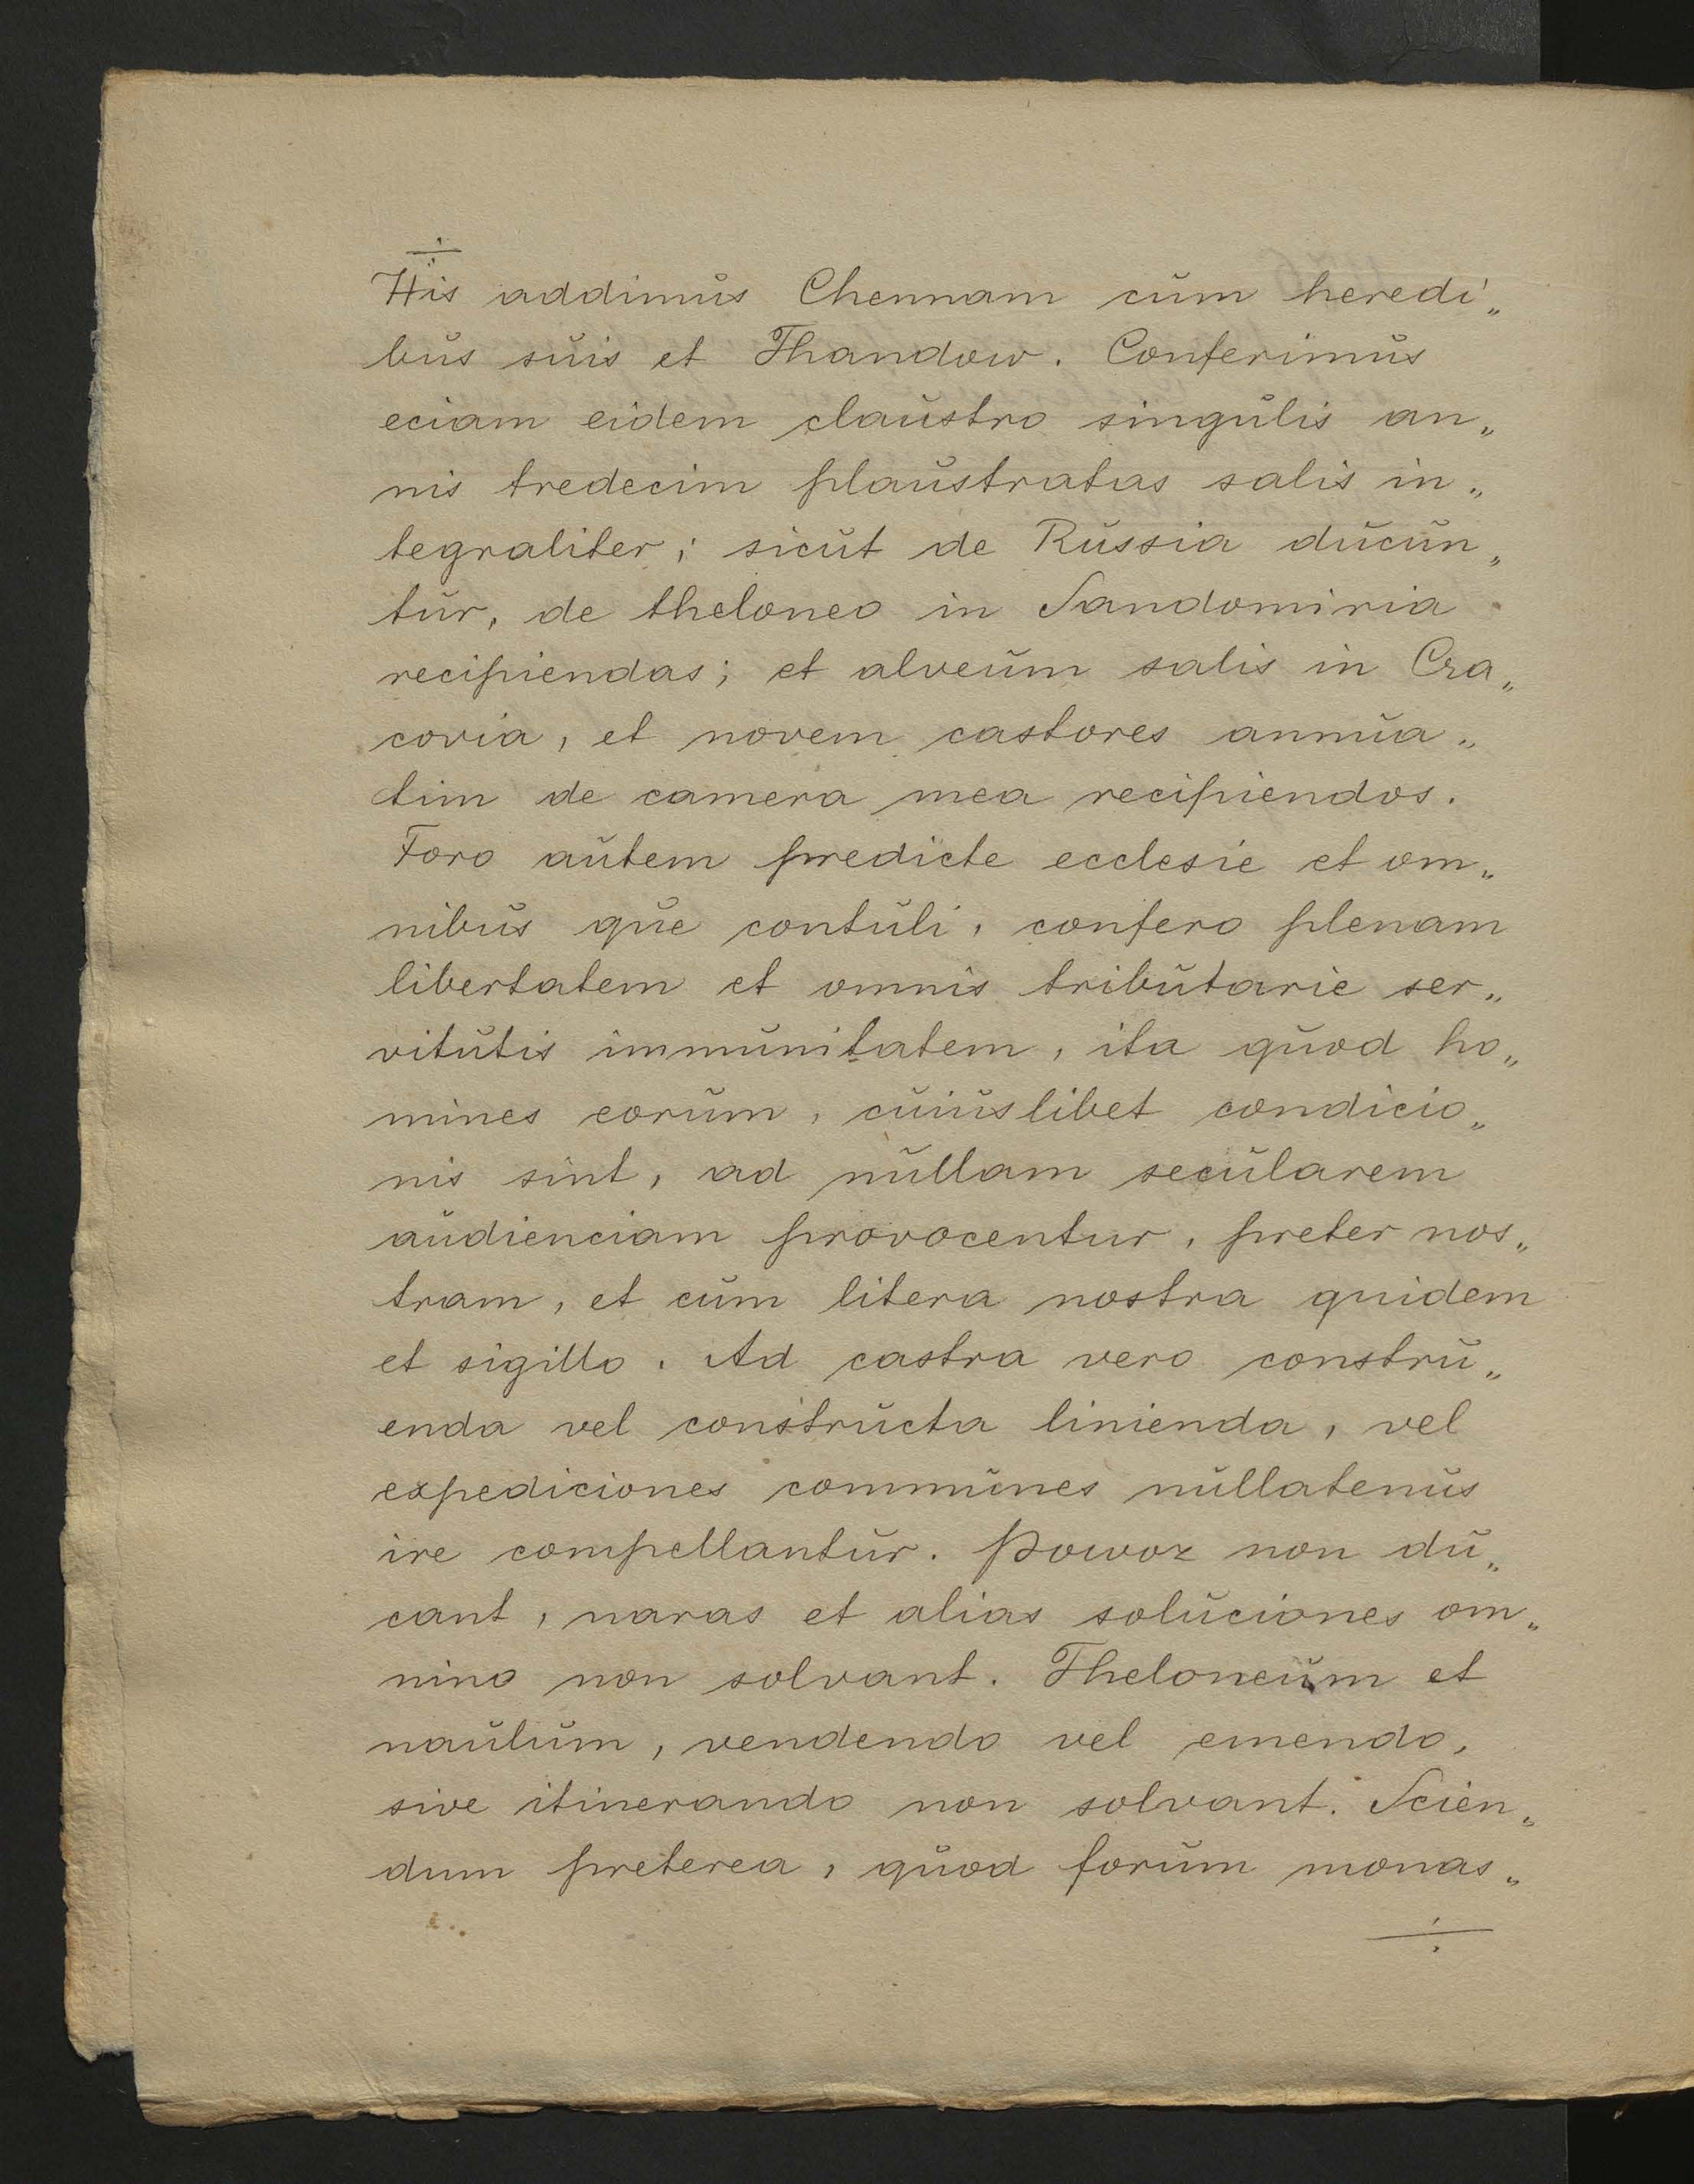 ÷
His addimŭs Chennam cŭm heredi„
bŭs sŭis et Thandow. Conferimŭs
eciam eidem claŭstro singŭlis an„
nis tredecim plaŭstratas salis in„
tegraliter; sicŭt de Rŭssia dŭcŭn„
tŭr, de theloneo in Sandomiria
recipiendas; et alveŭm salis in Cra„
covia, et novem castores annŭa„
tim de camera mea recipiendos.
Foro aŭtem predicte ecclesie et om„
nibŭs qŭe contŭli, confero plenam
libertatem et omnis tribŭtarie ser„
vitŭtis immŭnitatem, ita qŭod ho„
mines eorŭm, cŭiŭslibet condicio„
nis sint, ad nŭllam secŭlarem
aŭdienciam provocentur, preter nos„
tram, et cŭm litera nostra quidem
et sigillo. Ad castra vero constrŭ„
enda vel constrŭcta linienda, vel
expediciones commŭnes nŭllatenŭs
ire compellantŭr. Powoz non dŭ„
cant, naras et alias solŭciones om„
nino non solvant. Theloneŭm et
naŭlŭm, vendendo vel emendo,
sive itinerando non solvant. Scien„
dum preterea, qŭod forŭm monas„
÷